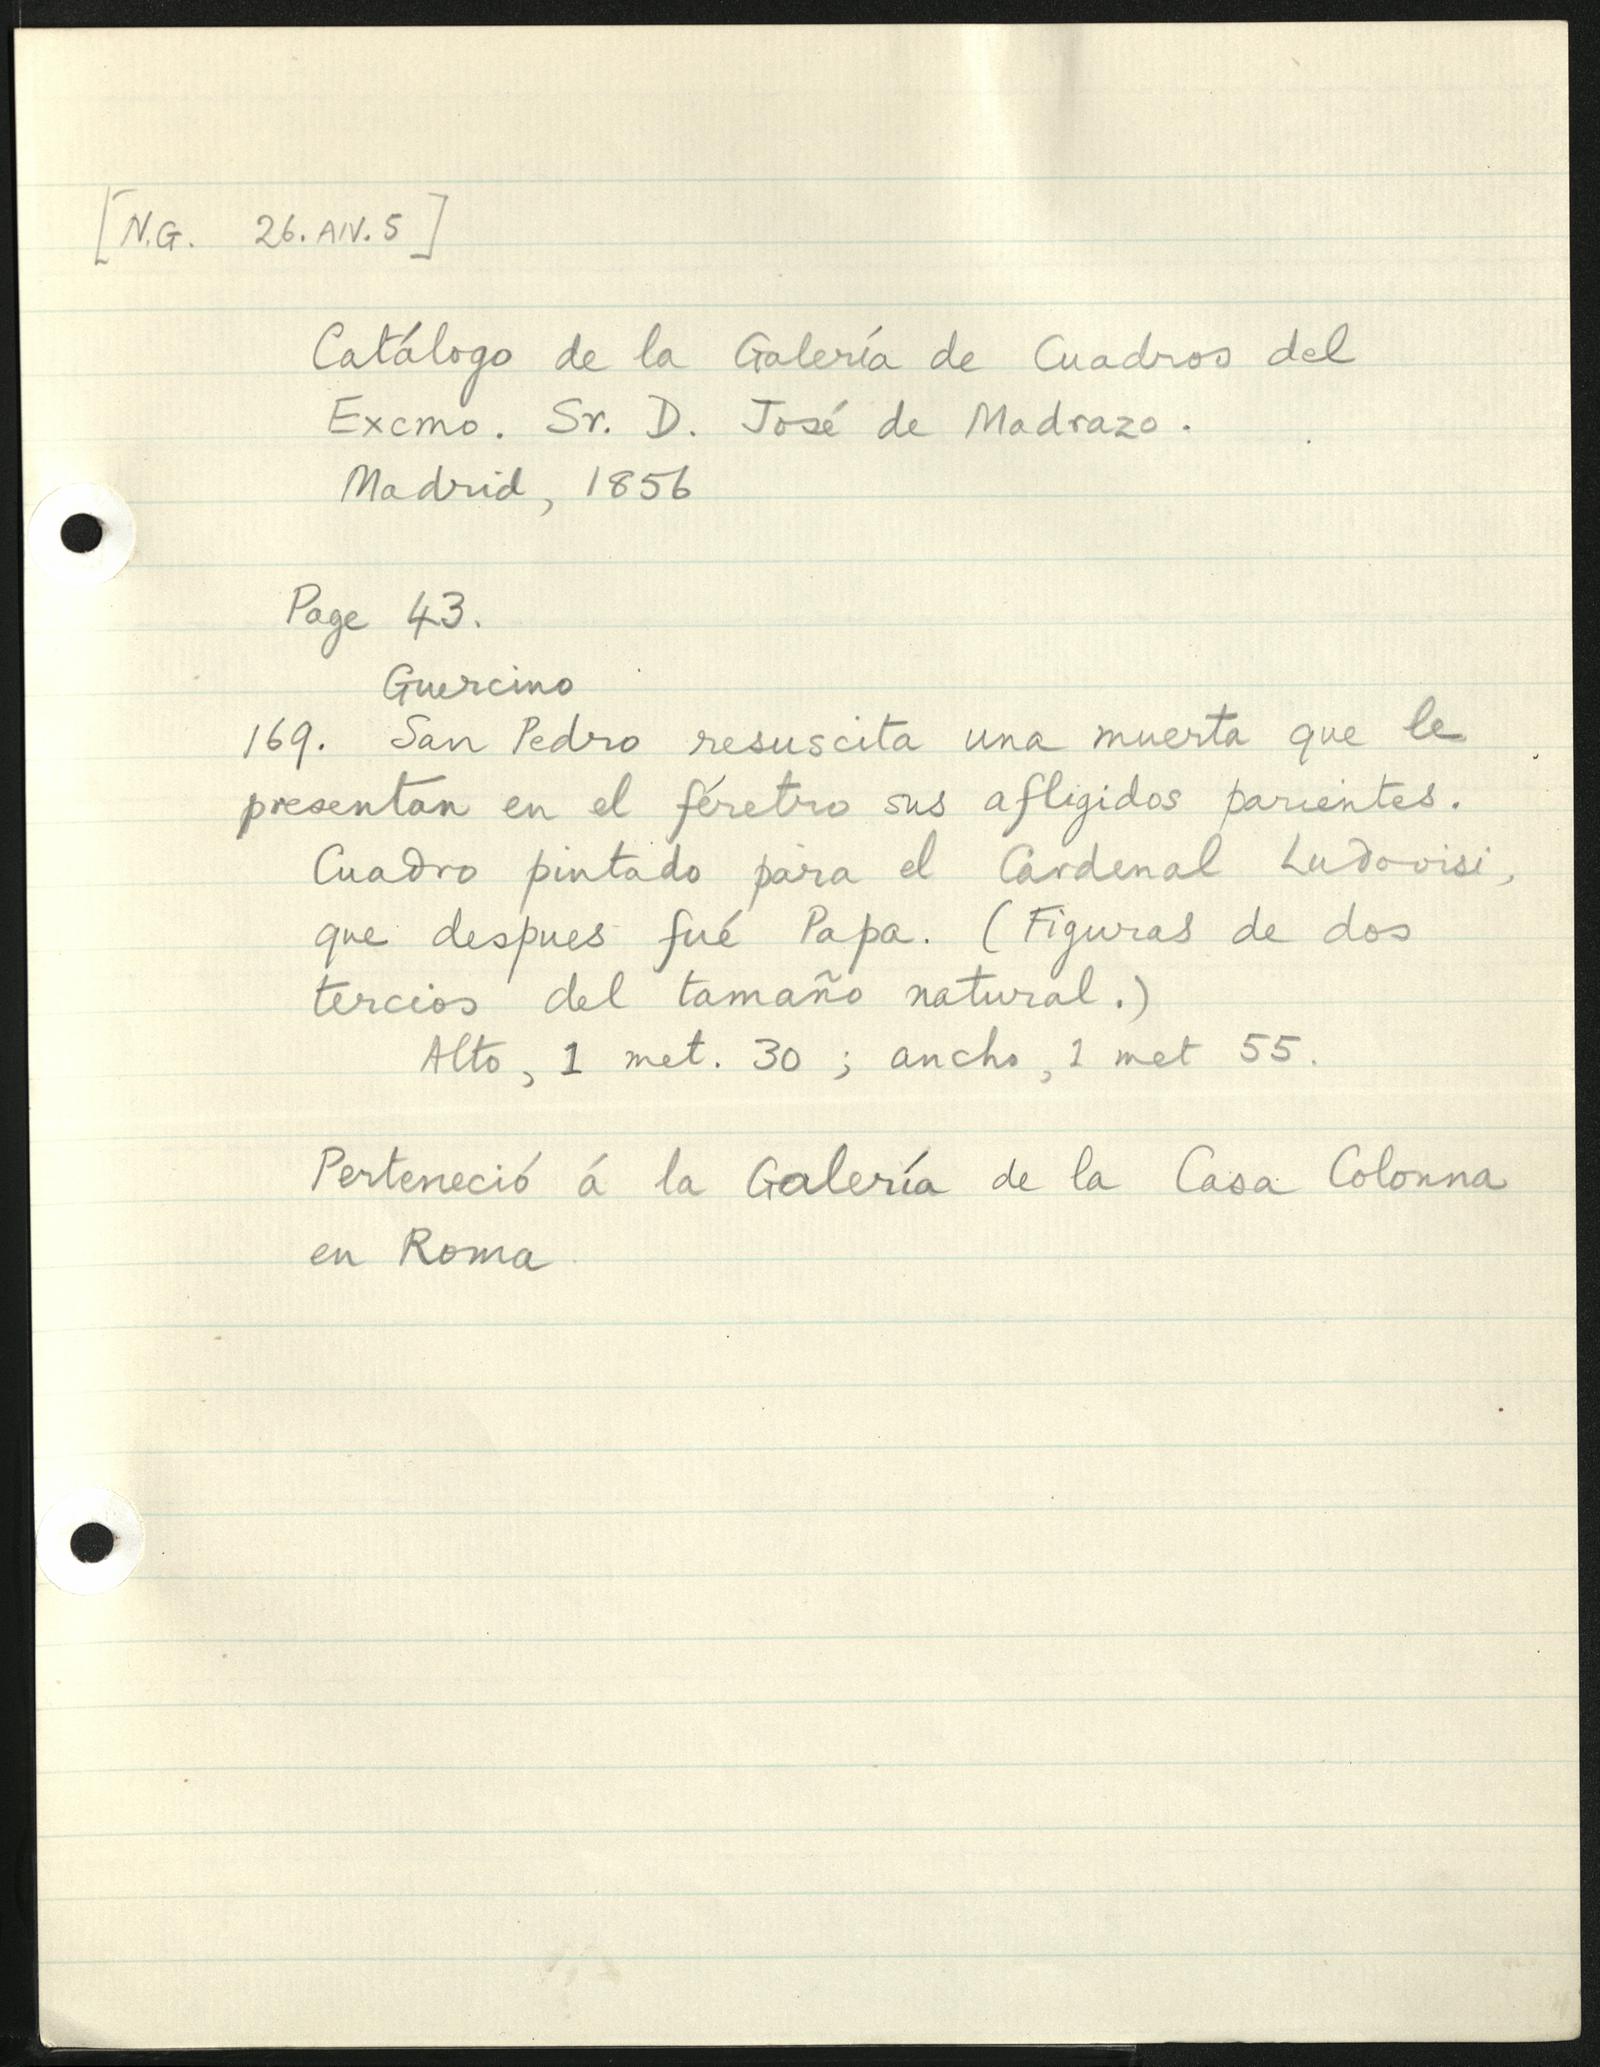 [N.G. 26.AIV.5]
Catálogo de la Galería de Cuadros del
Excmo. Sr. D. José de Madrazo.
Madrid, 1856
Page 43.
Guercino
169. San Pedro resuscita una muerta que le
presentan en el féretro sus afligidos parientes.
Cuadro pintado para el Cardenal Ludovisi,
que despues fué Papa. (Figuras de dos
tercios del tamaño natural.)
Alto, 1 met. 30; ancho, 1 met 55.
Perteneció á la Galería de la Casa Colonna
en Roma